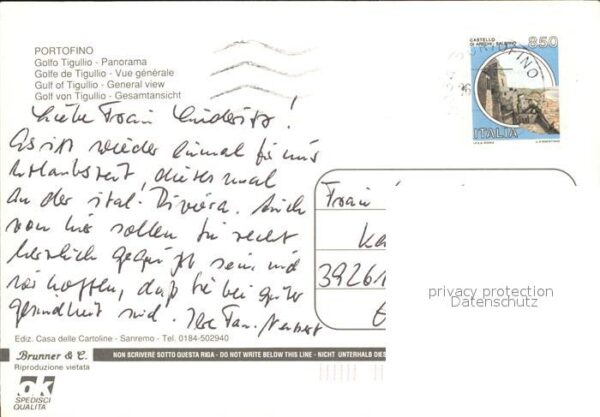 PORTOFINO
Golfo Tigullio - Panorama
Golfe de Tigullio - Vue générale
Gulf of Tigullio - General view
Golf von Tigullio - Gesamtansicht
CASTELLO
DI ARECHI - SALERNO
850
PORTOFINO
ITALIA
Liebe Frau !
Es ist wieder einmal für uns
Urlaubszeit, dieses mal
an der ital. Riviera. Auch
von hier sollen Sie recht
herzlich gegrüßt sein, und
wir hoffen, daß Sie bei guter
Gesundheit sind. Ihre Fam.
Frau
39261
privacy protection
Datenschutz
Ediz. Casa delle Cartoline - Sanremo - Tel. 0184-502940
Brunner & C.
NON SCRIVERE SOTTO QUESTA RIGA - DO NOT WRITE BELOW THIS LINE - NICHT UNTERHALB DIES
Riproduzione vietata
ok
SPEDISCI
QUALITÀ